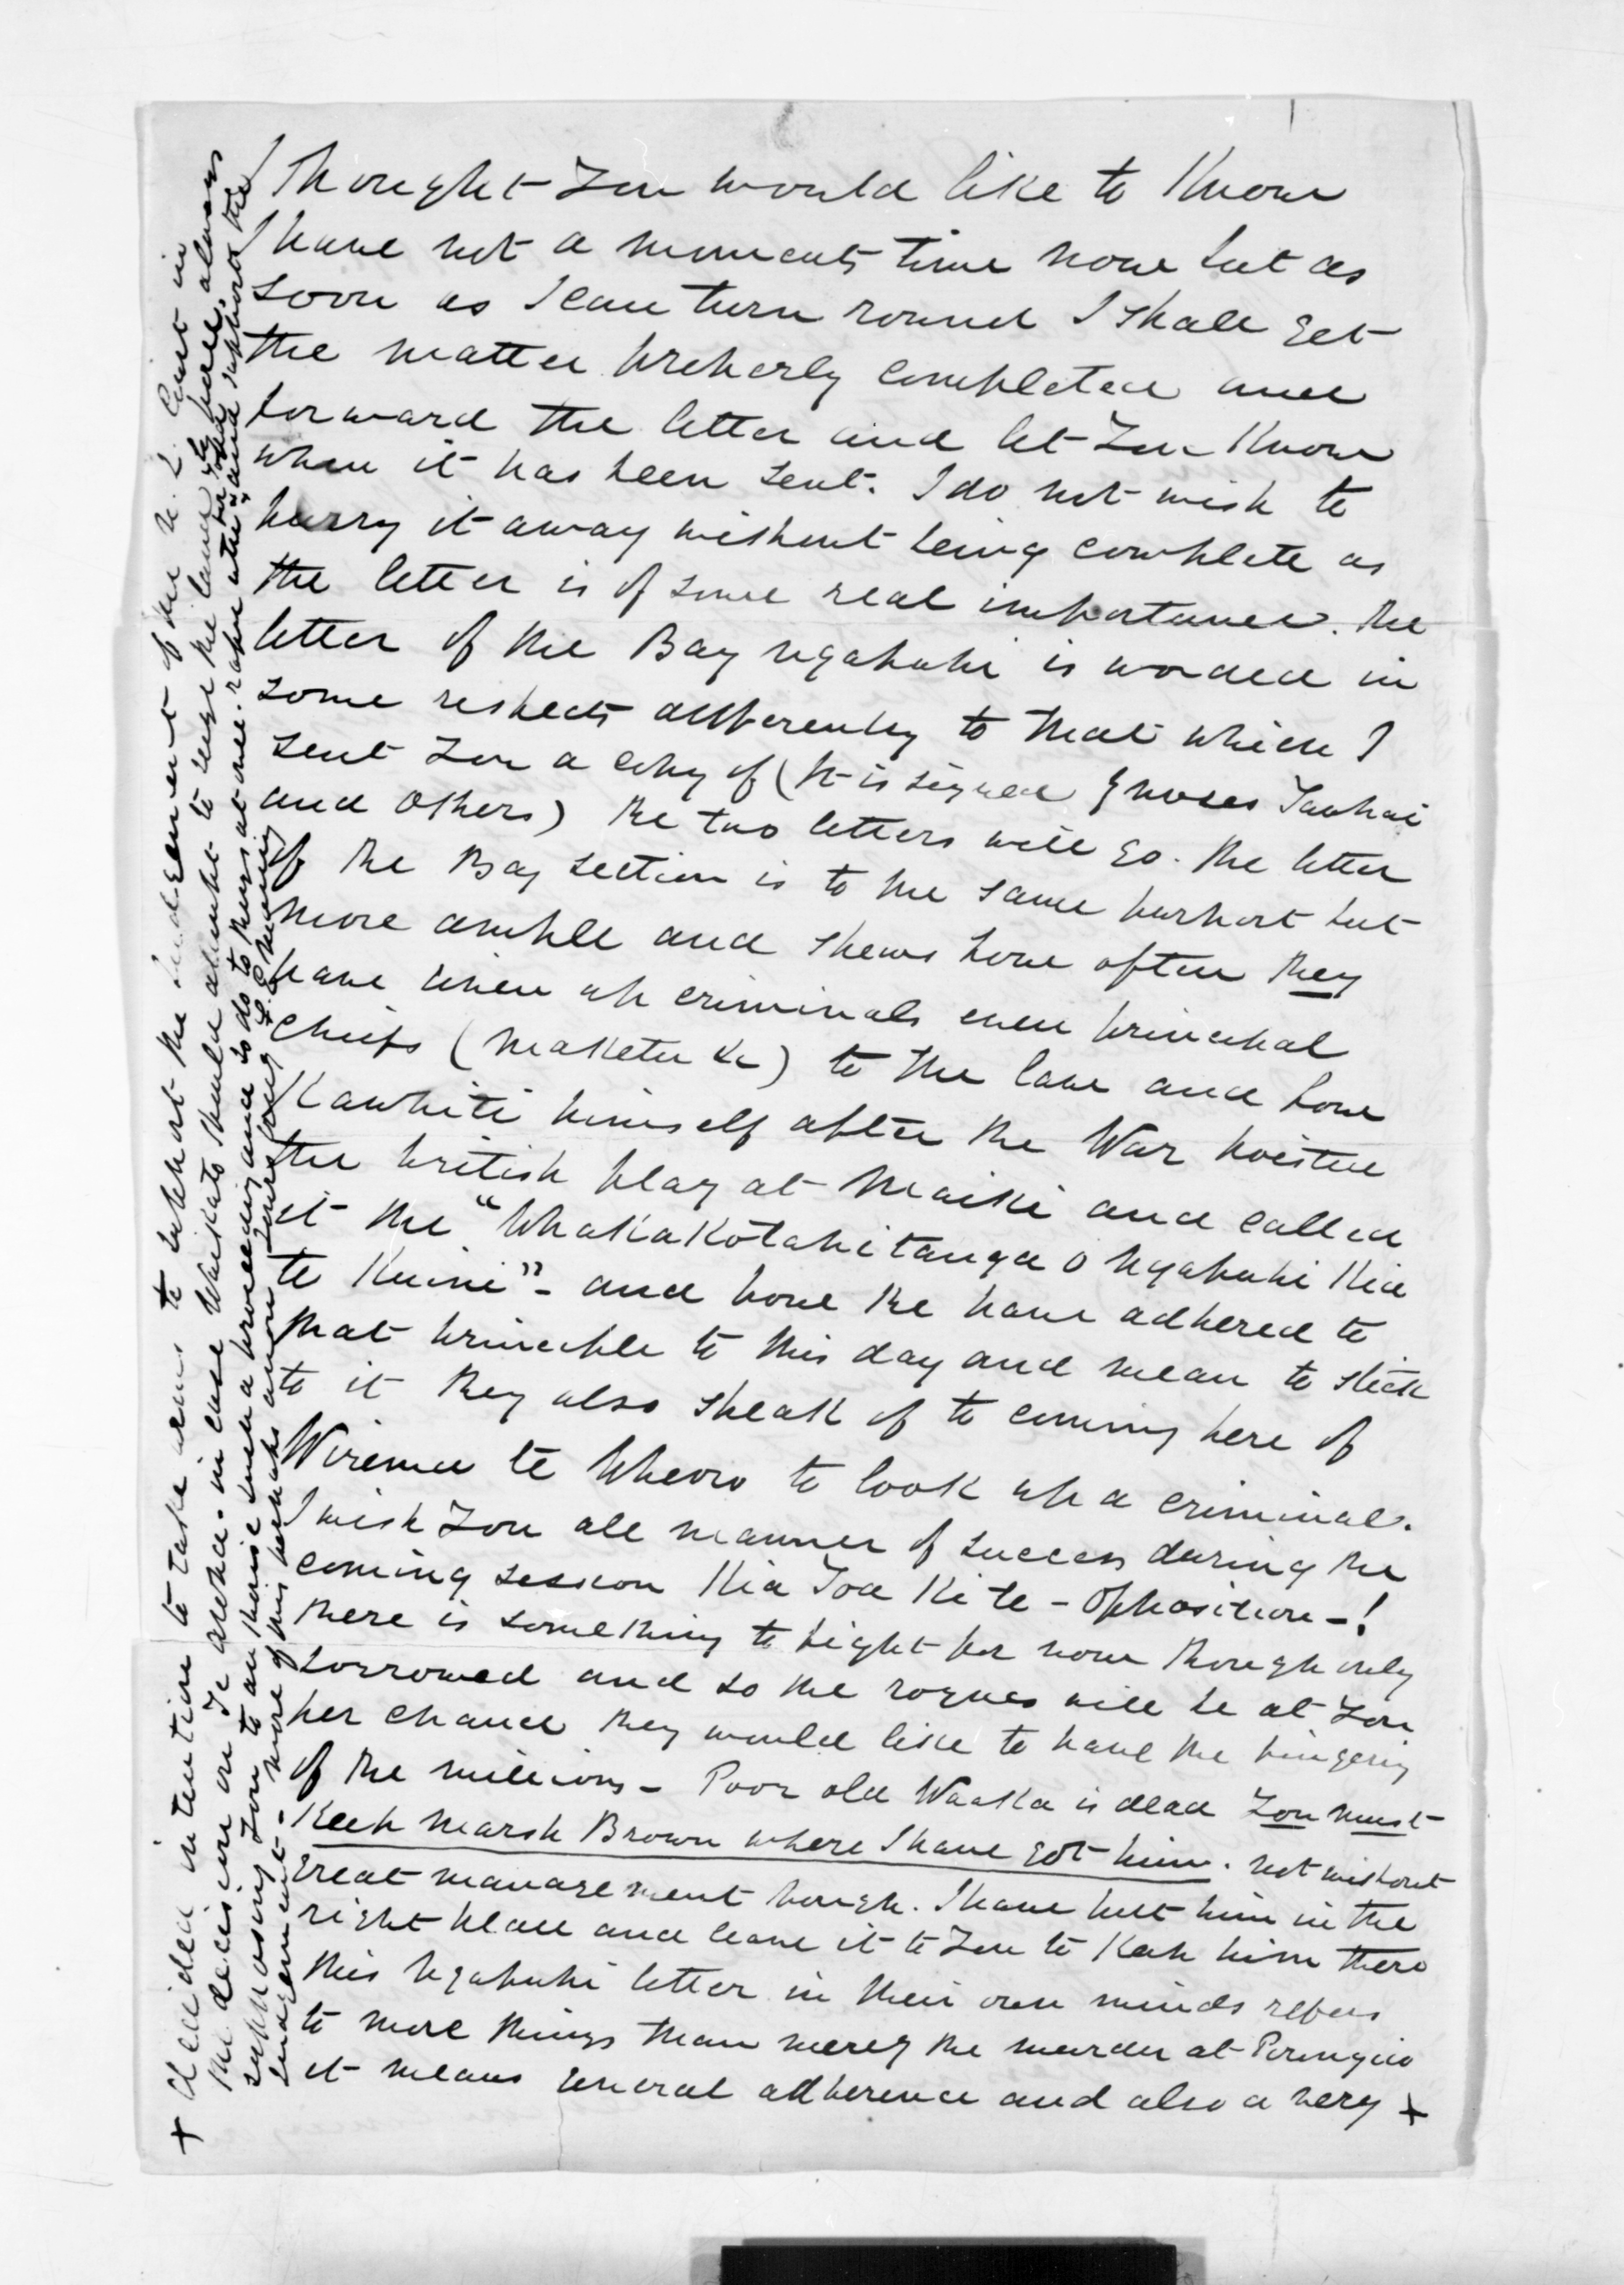 I thought you would like to know
I have not a moments time now but as
soon as I can turn round I shall get
the matter properly completed and
forward the letter and let you know
when it has been sent. I do not wish to
hurry it away without being complete as
the letter is of some real importance. The
letter of the Bay ngapuhi is worded in
some respects differently to that which I
sent you a copy of (It is signed Moses Tawhai
and others) The two letters will go. The letter
of the Bay section is to the same purport but
more ample and shews how often they
have given up criminals even principal
chiefs (Maketu &c) to the law and how
Kawhiti himself after the War hoisted
the british flag at Maiki and called
it the "Whakakotahitanga o Ngapuhi Kia
te Kuini" - and how the have adhered to
that principle to this day and mean to stick
to it they also speak of te coming here of
Wiremu te Wheoro to look up a criminal.
I wish you all manner of success during the
coming session Kia Toa Ki te - Opposition - !
there is something to fight for now though only
borrowed and so the rogues will be at you
per chance they would like to have the fingering
of the millions - Poor old Waaka is dead you must
Keep Marsh Brown where I have got him. not without
great management though. I have put him in the
right place and leave it to you to Keep him there
this Ngapuhi letter in their own minds refers
to more things than merely the murder at
it means general adherence and also a very +
+ decided intention to take arms to support the judgement of the N. L. Court in
the decision on Te aroha. in case Waikato should attempt to seize the land by force, always
supposing you to authorise such a proceeding and to do to them at once. rape utu "and support the
judgement - more of this perhaps anon Yours truly
F E Maning